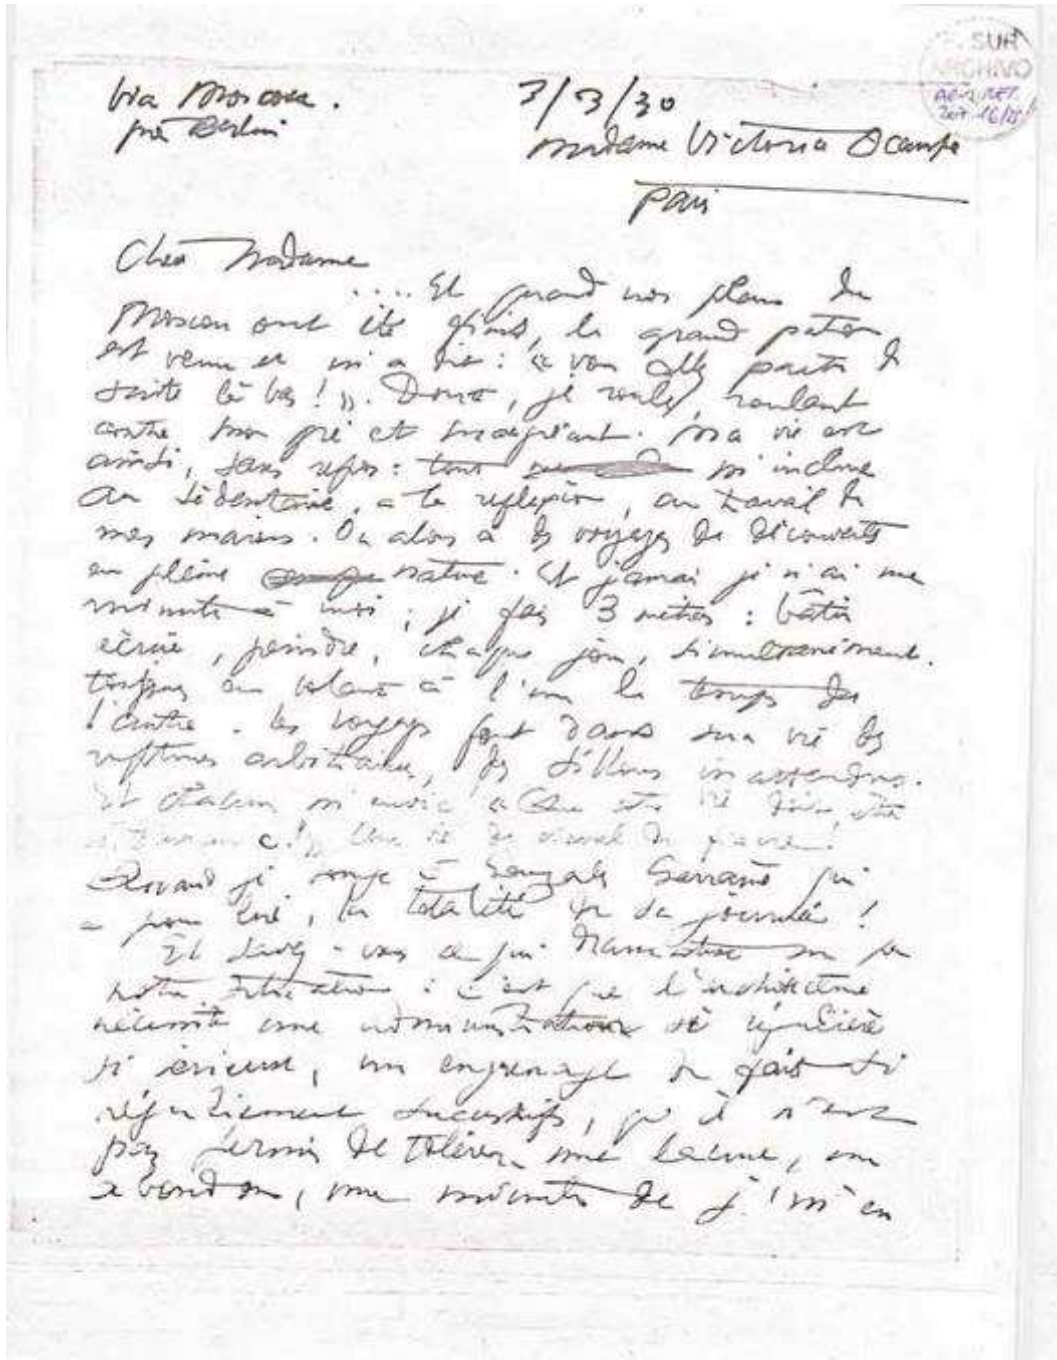 3/3/30
Madame Victoria Ocampo
Paris
via Moscou.
près Berlin
SUR
ARCHIVO
Chère Madame
.... Et quand nos plans du
Moscou ont été finis, le grand patron
est venu et m'a dit : « vous allez partir de
suite là bas ! ». Donc, je roule, roulant
contre mon gré et maugréant. Ma vie est
ainsi, sans repos : tout m'incline
au sédentaire, à la réflexion, au travail de
mes mains. Ou alors à des voyages de découverte
en pleine nature. Et jamais je n'ai une
minute à moi ; je fais 3 métiers : bâtir
écrire, peindre, chaque jour, simultanément.
toujours en volant à l'un le temps de
l'autre. Les voyages font dans ma vie des
ruptures arbitraires, des inattendus.
Et chacun m'envie : « Que votre vie doit être
! » Une vie de cheval de !
Quand je songe à Gonzales Garraño qui
a pour lui, la totalité de sa journée !
Et savez-vous ce qui dramatise un peu
notre situation : c'est que l'architecture
nécessite une administration si régulière
si sérieuse, un engrenage de faits si
régulièrement successifs, qu'il n'est
pas permis de tolérer une lacune, un
abandon, une minute de j'm'en